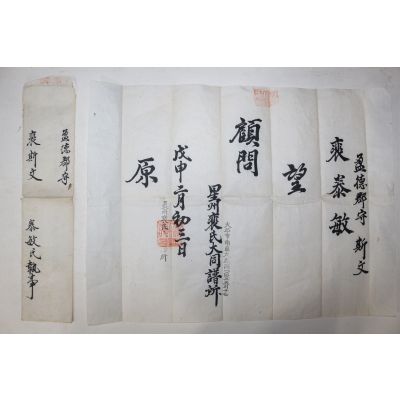 盈德郡守 斯文
裵泰敏
望
顧問
星州裵氏大同譜所
戊申二月初三日
原
盈德郡守
裵斯文
泰敏氏執事